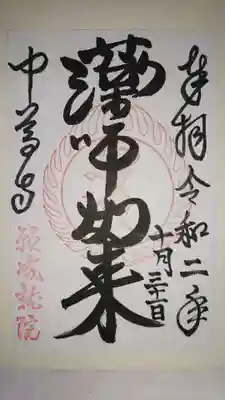 奉拝 令和二年
十月三十一日
薬師如来
中尊寺